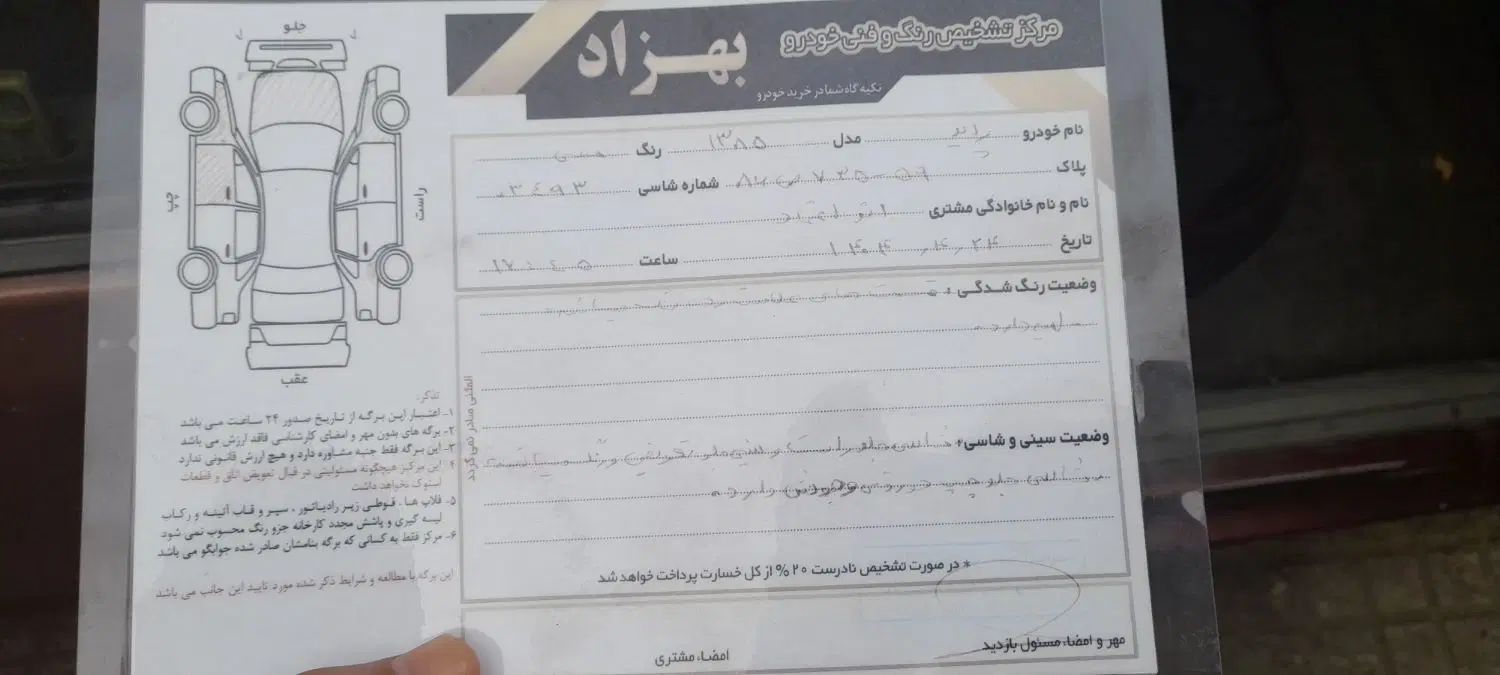 مرکز تشخیص رنگ و فنی خودرو
بهزاد
تکیه گاه شما در خرید خودرو
نام خودرو پراید مدل ۱۳۸۵ رنگ مسی
پلاک شماره شاسی ۰۳۴۹۳
نام و نام خانوادگی مشتری
تاریخ ۱۴۰۴.۰۴.۲۴ ساعت ۱۷:۴۵
وضعیت رنگ شدگی : قسمت های علامت زده رنگ میباشد
وضعیت سینی و شاسی:
* در صورت تشخیص نادرست ۲۰ % از کل خسارت پرداخت خواهد شد
مهر و امضاء مسئول بازدید
امضاء مشتری
المثنی صادر نمی گردد
جلو
چپ
راست
عقب
تذکر:
۱- اعتبار این برگه از تاریخ صدور ۲۴ ساعت می باشد
۲- برگه های بدون مهر و امضای کارشناسی فاقد ارزش می باشد
۳- این برگه فقط جنبه مشاوره دارد و هیچ ارزش قانونی ندارد
۴- این مرکز هیچگونه مسئولیتی در قبال تعویض اتاق و قطعات
استوک نخواهد داشت
۵- قلاب ها ، قوطی زیر رادیاتور ، سپر و قاب آئینه و رکاب
لبه گیری و پاشش مجدد کارخانه جزو رنگ محسوب نمی شود
۶- مرکز فقط به کسانی که برگه بنامشان صادر شده جوابگو می باشد
این برگه با مطالعه و شرایط ذکر شده مورد تایید این جانب می باشد